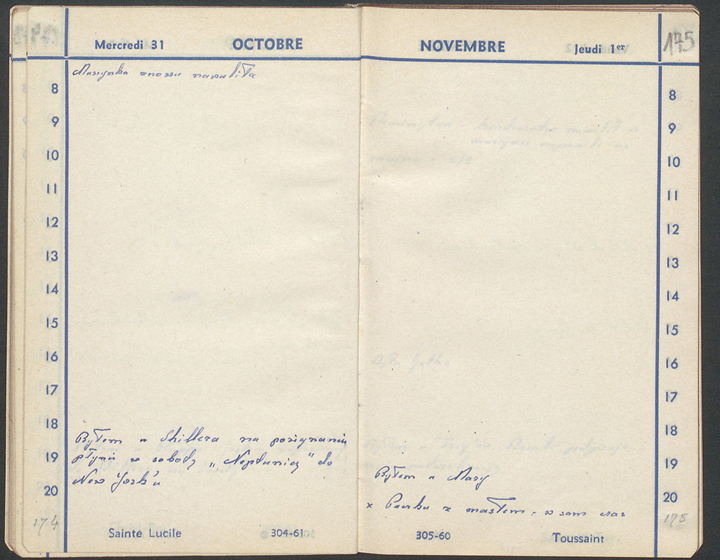 Mercredi 31 OCTOBRE
znowu nawaliła
8
9
10
11
12
13
14
15
16
17
18
19
20
Byłem u Shillera na pożegnaniu
płynie w sobotę „Neptunią" do
New York'u
174
Sainte Lucile 304-61
NOVEMBRE Jeudi 1er
175
8
9
10
11
12
13
14
15
16
17
18
19
20
Byłem u Mary
x Paczka z masłem, w sam czas
175
305-60 Toussaint